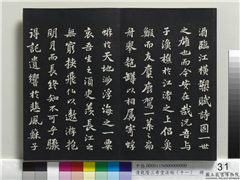 酒臨江橫槊賦詩固一世
之雄也而今安在哉況吾與
子漁樵於江渚之上侶魚
鰕而友麋鹿駕一葉之扁
舟舉匏樽以相屬寄蜉
蝣於天地渺浮海之一粟
哀吾生之須臾羨長江之
無窮挾飛仙以遨遊抱
明月而長終知不可乎驟
得託遺響於悲風蘇子
31